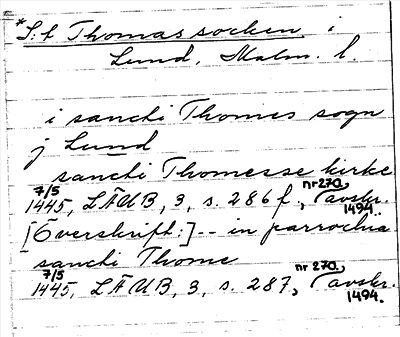 *S:t Thomas socken, i
Lund, Malm. l.
i sancti Thomes sogn
j Lund
sancti Thomesse kirke
7/5 1445, LÄUB, 3, s. 286 f., nr 270, avskr. 1494.
[Överskrift:] -- in parrochia
sancti Thome
7/5 1445, LÄUB, 3, s. 287, nr 270, avskr. 1494.